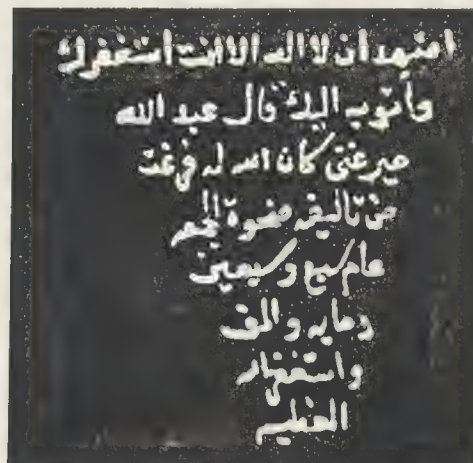 اشهد ان لا اله الا انت استغفرك
واتوب اليك قال عبد الله
ميرغني كان الله له فرغت
من تاليفه ضحوة الجمعه
عام سبع وسبعين
ومايه والف
واستغفر الله
العظيم